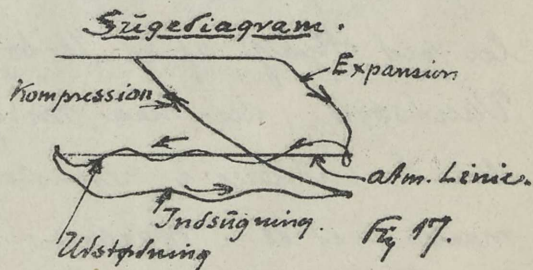 Sûgediagram.
Expansion
Kompression
atm. Linie.
Indsûgning.
Fig 17.
Udstødning